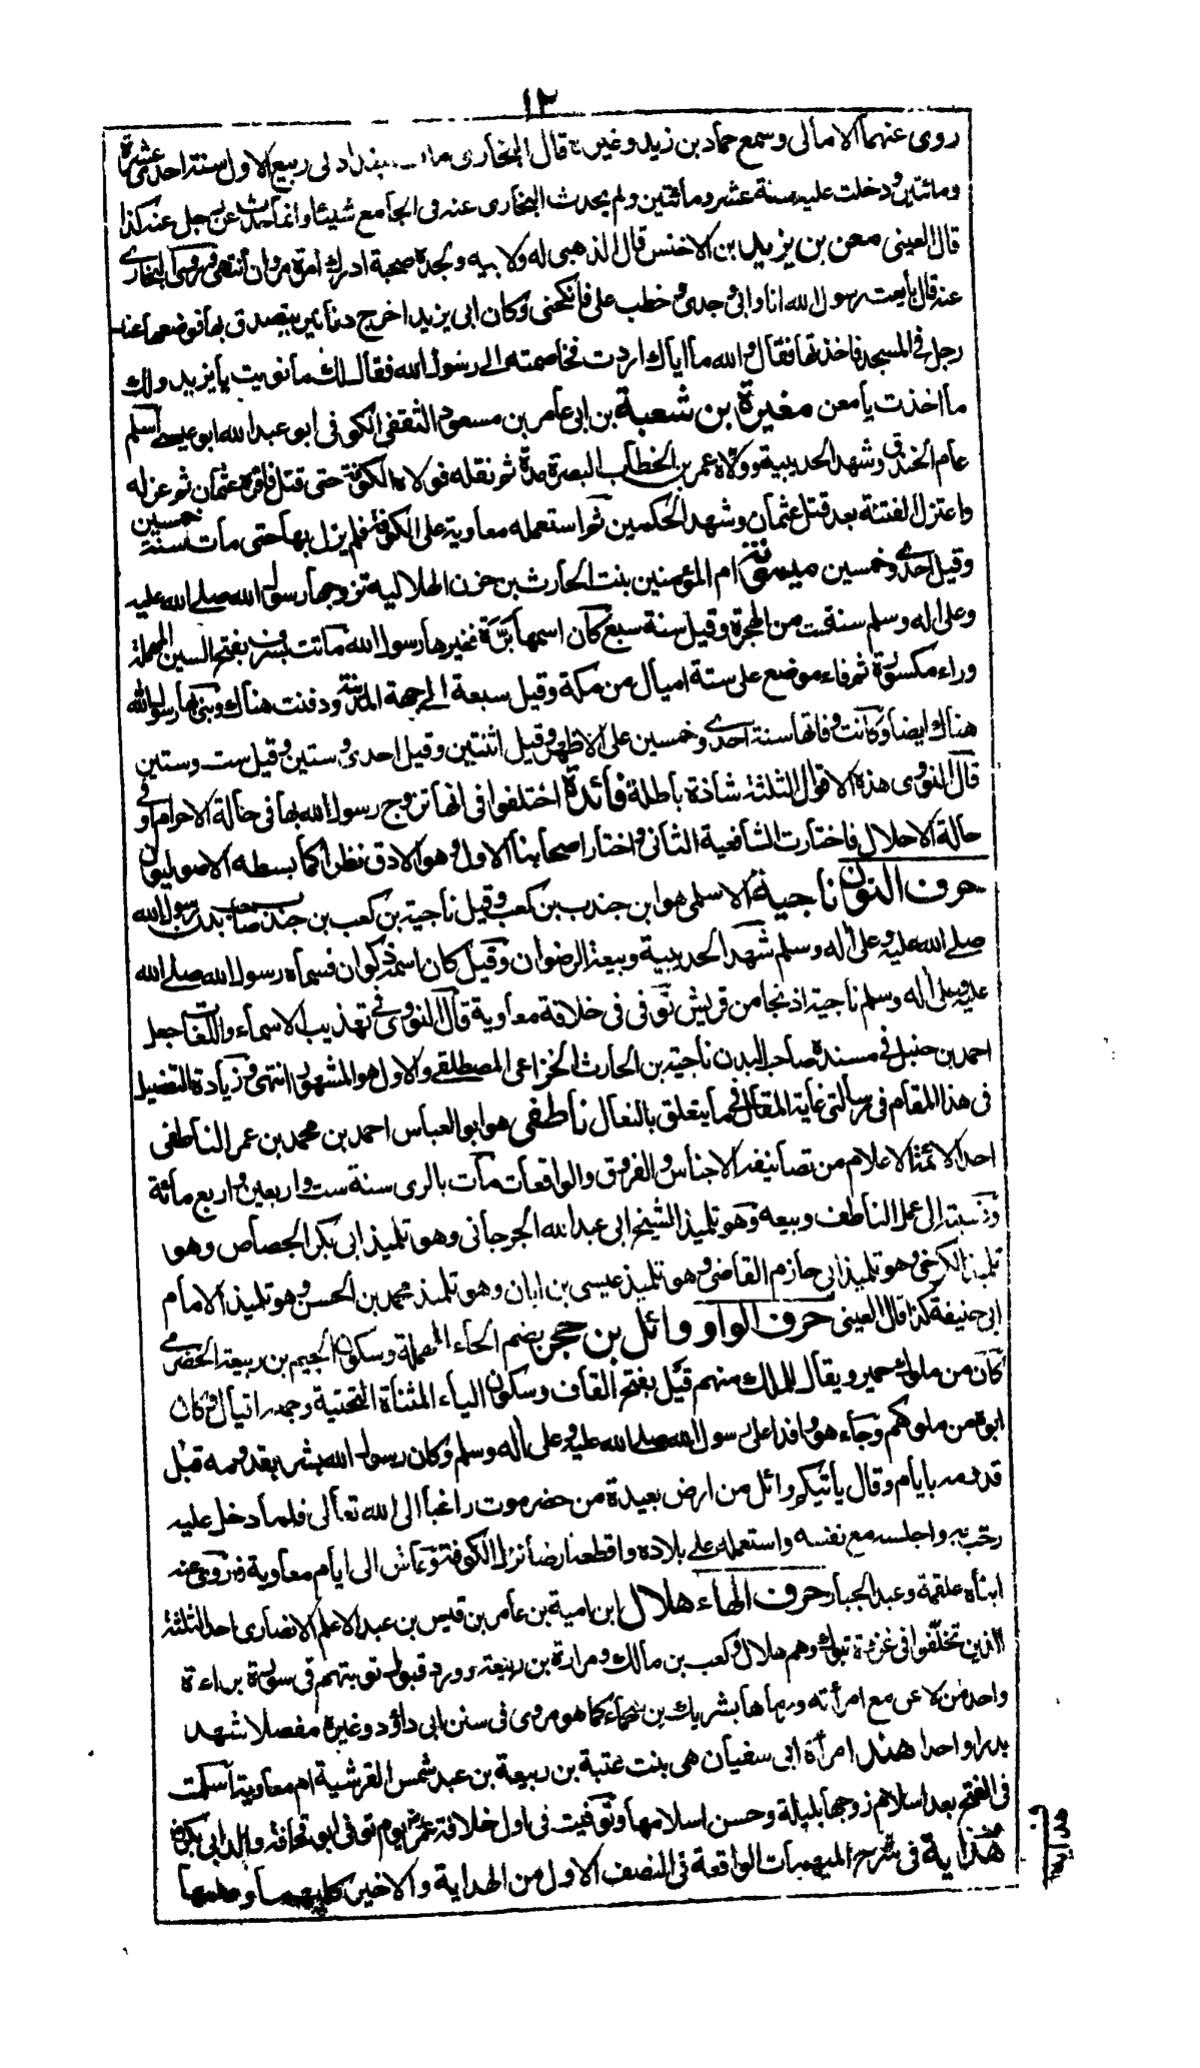 ١٢
روى عنهما الامالى وسمع حماد بن زيد وغيره قال البخارى مات ببغداد فى ربيع الاول سنة احدى عشرة
ومائتين ودخلت عليه سنة عشر ومائتين ولم يحدث البخارى عنه فى الجامع شيئا وانما حدث عن رجل عنه كذا
قال العينى معن بن يزيد بن الاخنس قال الذهبى له ولابيه ولجده صحبة ادرك امرة مروان انتهى وروى البخارى
عنه قال بايعت رسول الله انا وابى وجدى وخطب على فانكحنى وكان ابى يزيد اخرج دنانير يتصدق بها فوضعها عند
رجل فى المسجد فاخذتها فقال والله ما اياك اردت فخاصمته الى رسول الله فقال لك ما نويت يا يزيد ولك
ما اخذت يا معن مغيرة بن شعبة بن ابى عامر بن مسعود الثقفى الكوفى ابو عبد الله ابو عيسى اسلم
عام الخندق وشهد الحديبية وولاه عمر بن الخطاب البصرة مدة ثم نقله فولاه الكوفة حتى قتل فاقره عثمان ثم عزله
واعتزل الفتنة بعد قتل عثمان وشهد الحكمين ثم استعمله معاوية على الكوفة فلم يزل بها حتى مات سنة خمسين
وقيل احدى وخمسين ميمونة ام المؤمنين بنت الحارث بن حزن الهلالية تزوجها رسول الله صلى الله عليه
وعلى اله وسلم سنة ست من الهجرة وقيل سنة سبع كان اسمها بَرَّة فغيرها رسول الله ماتت بسرف بفتح السين المهملة
وراء مكسورة ثم فاء موضع على ستة اميال من مكة وقيل سبعة الى جهة المدينة ودفنت هناك وبنى بها رسول الله
هناك ايضا وكانت وفاتها سنة احدى وخمسين على الاظهر وقيل اثنتين وقيل احدى وستين وقيل ست وستين
قال النووى هذه الاقوال الثلثة شاذة باطلة فائدة اختلفوا فى انها تزوج رسول الله بها فى حالة الاحرام او فى
حالة الاحلال فاختارت الشافعية الثانى واختار اصحابنا الاول وهو الادق نظرا كما بسطه الاصوليون
حرف النون ناجية الاسلمى هو ابن جندب بن كعب وقيل ناجية بن كعب بن جندب صاحب بدن رسول الله
صلى الله عليه وعلى اله وسلم شهد الحديبية وبيعة الرضوان وقيل كان اسمه ذكوان فسماه رسول الله صلى الله
عليه وعلى اله وسلم ناجية اذ نجا من قريش توفى فى خلافة معاوية قال النووى فى تهذيب الاسماء واللغات جعل
احمد بن حنبل فى مسنده صاحب البدن ناجية بن الحارث الخزاعى المصطلقى والاول هو المشهور انتهى وزيادة التفصيل
فى هذا المقام فى رسالتى غاية المقال فيما يتعلق بالنعال ناطفى هو ابو العباس احمد بن محمد بن عمر الناطفى
احد الائمة الاعلام من تصانيفه الاجناس والفروق والواقعات مات بالرى سنة ست واربعين واربع مائة
ونسبته الى عمل الناطف وبيعه وهو تلميذ الشيخ ابى عبد الله الجرجانى وهو تلميذ ابى بكر الجصاص وهو
تلميذ الكرخى وهو تلميذ ابى حازم القاضى وهو تلميذ عيسى بن ابان وهو تلميذ محمد بن الحسن وهو تلميذ الامام
ابى حنيفة كذا قال العينى حرف الواو وائل بن حجر بضم الحاء المهملة وسكون الجيم بن ربيعة الحضرمى
كان من ملوك حمير ويقال للملك منهم قَيْل بفتح القاف وسكون الياء المثناة التحتية وجمعه اقيال وكان
ابوه من ملوكهم وجاء هو وافدا على رسول الله صلى الله عليه وعلى اله وسلم وكان رسول الله بشر بقدومه قبل
قدومه بايام وقال ياتيكم وائل من ارض بعيدة من حضرموت راغبا الى الله تعالى فلما دخل عليه
رحب به واجلسه مع نفسه واستعمله على بلاده واقطعه ارضا نزل الكوفة وعاش الى ايام معاوية وروى عنه
ابناه علقمة وعبد الجبار حرف الهاء هلال ابن امية بن عامر بن قيس بن عبد الاعلم الانصارى احد الثلثة
الذين تخلفوا فى غزوة تبوك وهم هلال وكعب بن مالك ومرارة بن ربيعة وورد قبول توبتهم فى سورة براءة
واحد من لاعن مع امرأته ورماها بشريك بن سحماء كما هو مروى فى سنن ابى داؤد وغيره مفصلا شهد
بدرا واحدا هند امرأة ابى سفيان هى بنت عتبة بن ربيعة بن عبد شمس القرشية ام معاوية اسلمت
فى الفتح بعد اسلام زوجها بليلة وحسن اسلامها وتوفيت فى اول خلافة عمر يوم توفى ابو قحافة والد ابى بكر
هداية فى شرح المبهمات الواقعة فى النصف الاول من الهداية والاخير
هداية